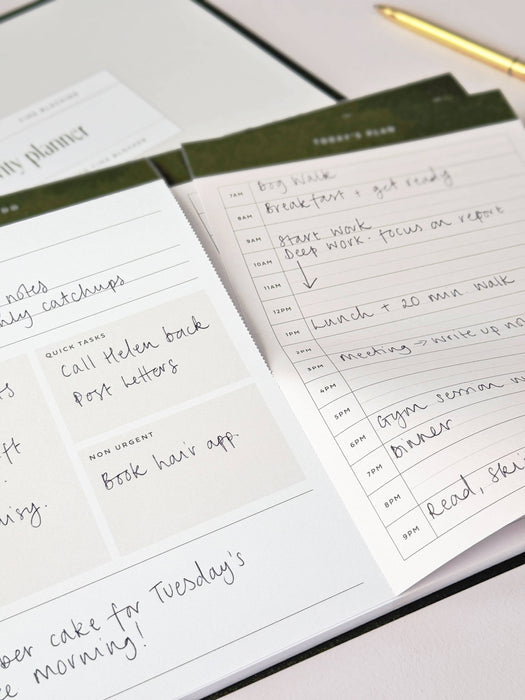 TIME BLOCKING
planner
TIME BLOCKING
DO
notes
catchups
QUICK TASKS
Call Helen back
Post letters
NON URGENT
Book hair app.
cake for Tuesday's
morning!
TODAY'S PLAN
7AM Dog Walk
8AM Breakfast + get ready
9AM Start work
10AM Deep work - focus on report
11AM
12PM
1PM Lunch + 20 min walk
2PM
3PM Meeting → write up
4PM
5PM
6PM Gym session
7PM Dinner
8PM
9PM Read,